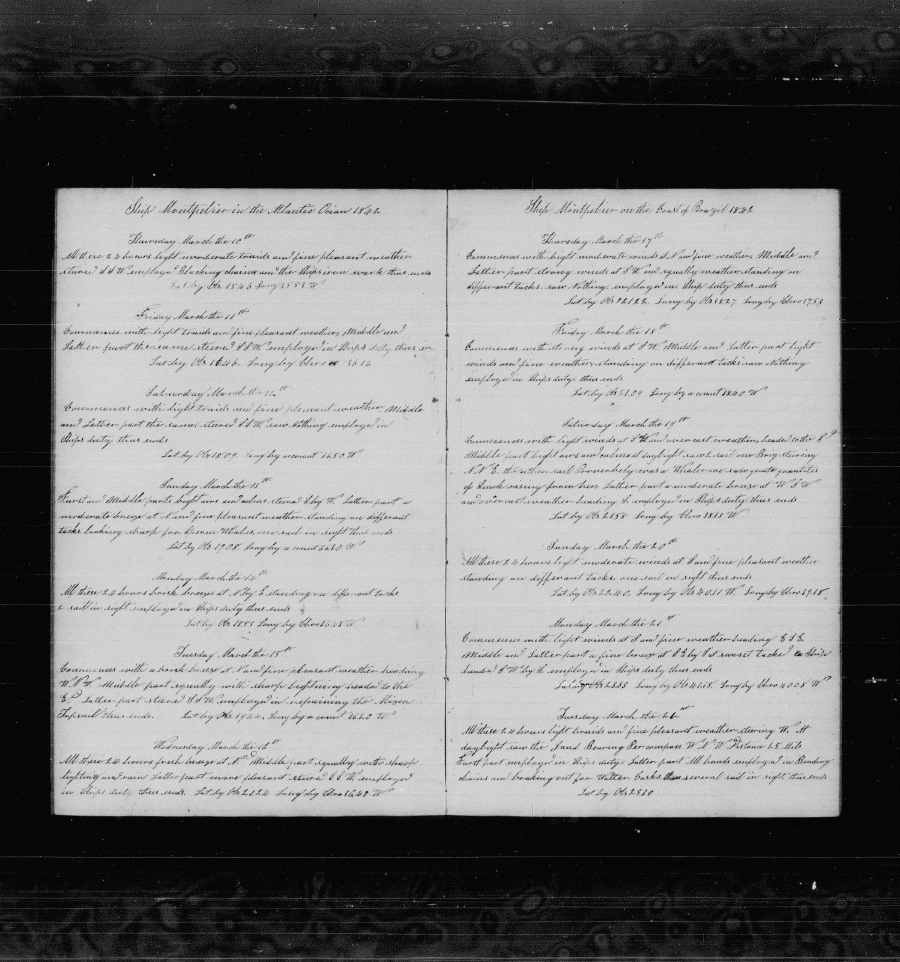 Ship Montpelier in the Atlantic Ocian 1842
Thursday March the 10th
All these 24 hours light moderate traids and fine pleasant weather
steared S S W employed Blacking chains and the Ships iron work thus ends
Lat by Obs 1546 Long 3553 W
Friday March the 11th
Commences with light traids and fine pleasant weather Middle and
Latter part the same steared S S W employed in Ships duty thus
Lat by Obs 1646 Long by Chro 3616
Saturday March the 12th
Commences with light traids and fine pleasant weather Middle
and Latter part the same steared S S W saw Nothing employed in
Ships duty thus ends
Lat by Obs 1809 Long by account 3650 W
Sunday March the 13th
Furst and Middle parts light airs and calms steared S by W Latter part a
moderate breeze at N and fine pleasant weather standing on differant
tacks looking sharp for Sperm Whales one sail in sight thus ends
Lat by Obs 1908 Long by a count 3680 W
Monday March the 14th
All these 24 hours brisk breeze at N by E standing on differant tacks
2 sail in sight employed in Ships duty thus ends
Lat by Obs 1885 Long by Chro 3645 W
Tuesday March the 15th
Commences with a brisk breeze at N and fine pleasant weather heading
W N W Middle part squally with sharp lightning headed to the
Ed Latter part steared S S W employed in repairing the Mizen
Topsail thus ends. Lat by Obs 1924 Long by a count 3620 W
Wednesday March the 16th
All these 24 hours fresh breeze at Nd Middle part squally with sharp
lighting and rain Latter part more pleasant steared S S W employed
in Ships duty thus ends Lat by Obs 2124 Long by Chro 3642 W
Ship Montpelier on the Coast of Brazil 1842
Thursday March the 17th
Commences with light moderate winds at S and fine weather Middle and
Latter part strong winds at S W and squally weather standing on
differant tacks saw Nothing employed in Ships duty thus ends
Lat by Obs 2122 Long by Obs 3827 Long by Chro 3753
Friday March the 18th
Commences with strong winds at S W Middle and Latter part light
winds and fine weather standing on differant tacks saw Nothing
employed in Ships duty thus ends
Lat by Obs 2109 Long by a count 3840 W
Saturday March the 19th
Commences with light winds at S W and over cast weather headed to the Sd
Middle part light airs and calms at daylight saw 2 sail one Brig steering
N N E the other sail Proverbely was a Whaler we saw grate quantites
of smok rasing from her Latter part a moderate breeze at W S W
and overcast weather heading S employed in Ships duty thus ends
Lat by Obs 2158 Long by Chro 3813 W
Sunday March the 20th
All these 24 hours light moderate winds at S and fine pleasant weather
standing on differant tacks one sail in sight thus ends
Lat by Obs 2240 Long by Obs 4011 W Long by Chro 3918
Monday March the 21st
Commences with light winds at S and fine weather heading E S E
Middle and Latter part a fine breeze at S E by S at sunset tacked Ship
headed S W by S employed in Ships duty thus ends
Lat Obs 2333 Long by Obs 4128 Long by Chro 4008 W
Tuesday March the 22th
All these 24 hours light traids and fine pleasant weather stering W. At
daylight saw the Land Bearing Per compass W N W Distance 25 Mils
Furst part employed in Ships duty Latter part All hands employed in Bending
chains and breaking out for Watter Casks several sail in sight thus ends
Lat by Obs 2330